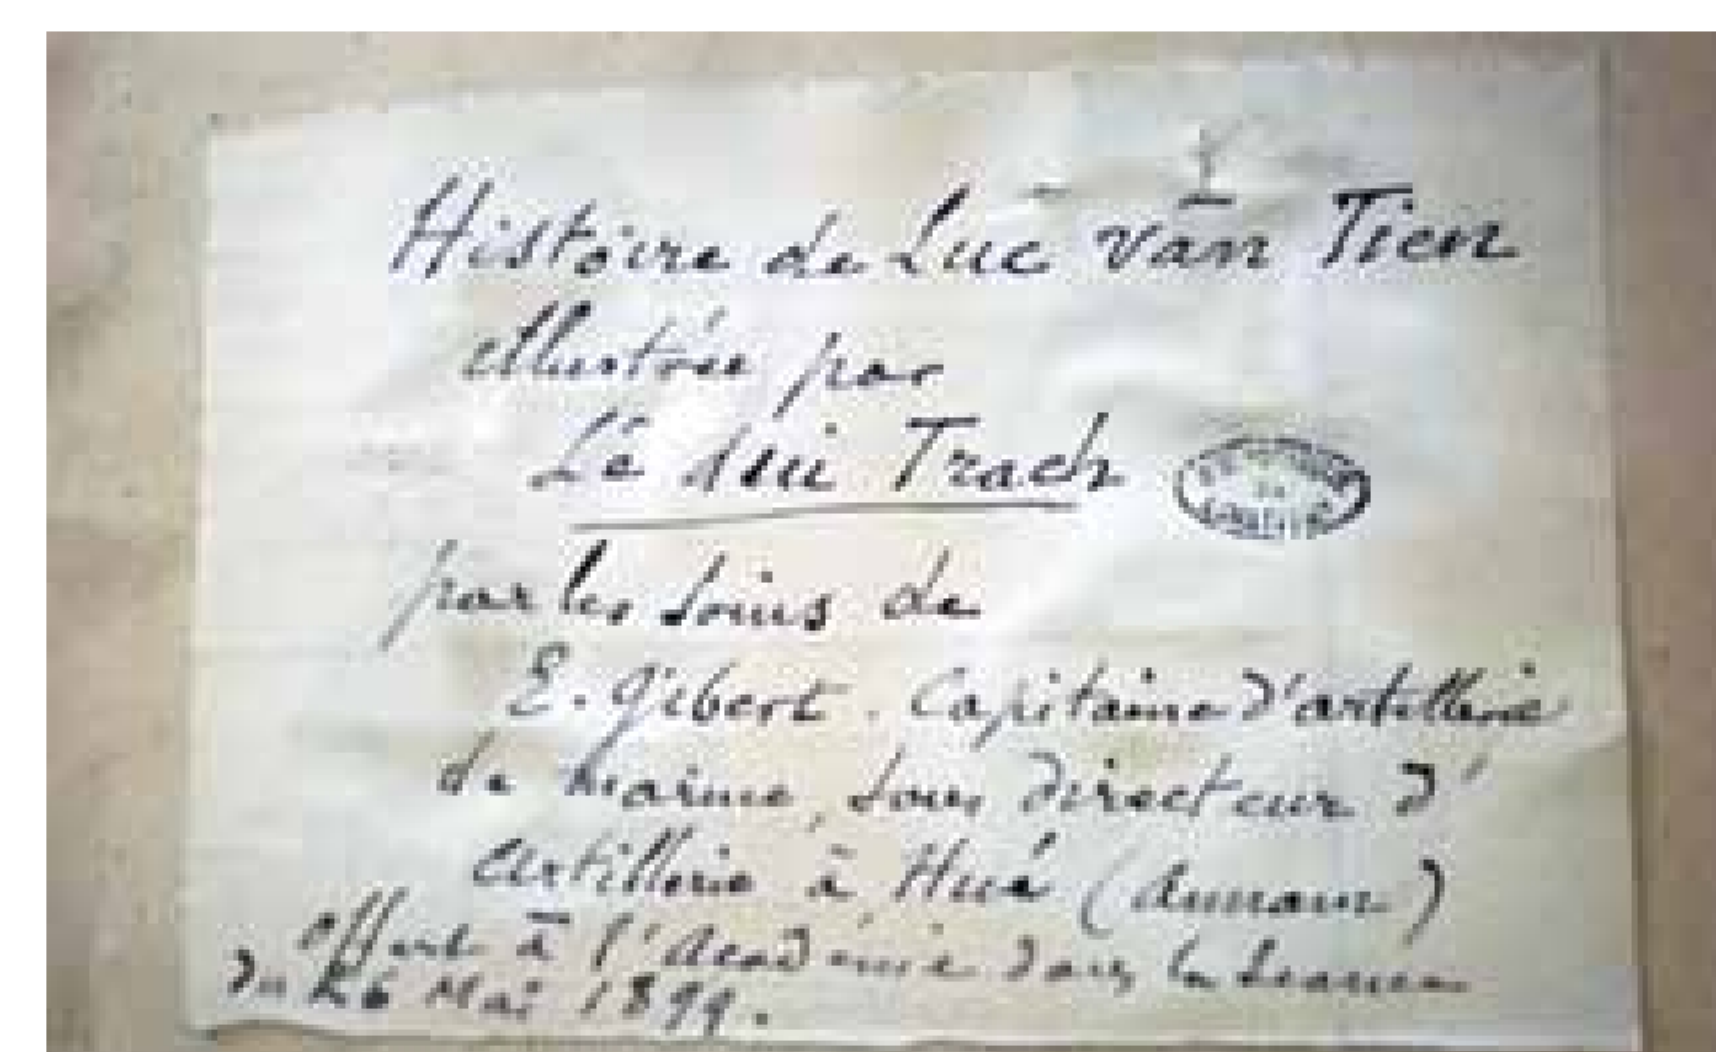 Histoire de Luc Văn Tien
illustrée par
Lê dui Trach
par les soins de
E. Gibert. Capitaine d'artillerie
de marine, sous directeur d'
artillerie à Hué (Annam)
offert à l'Académie dans la séance
du 26 Mai 1899.